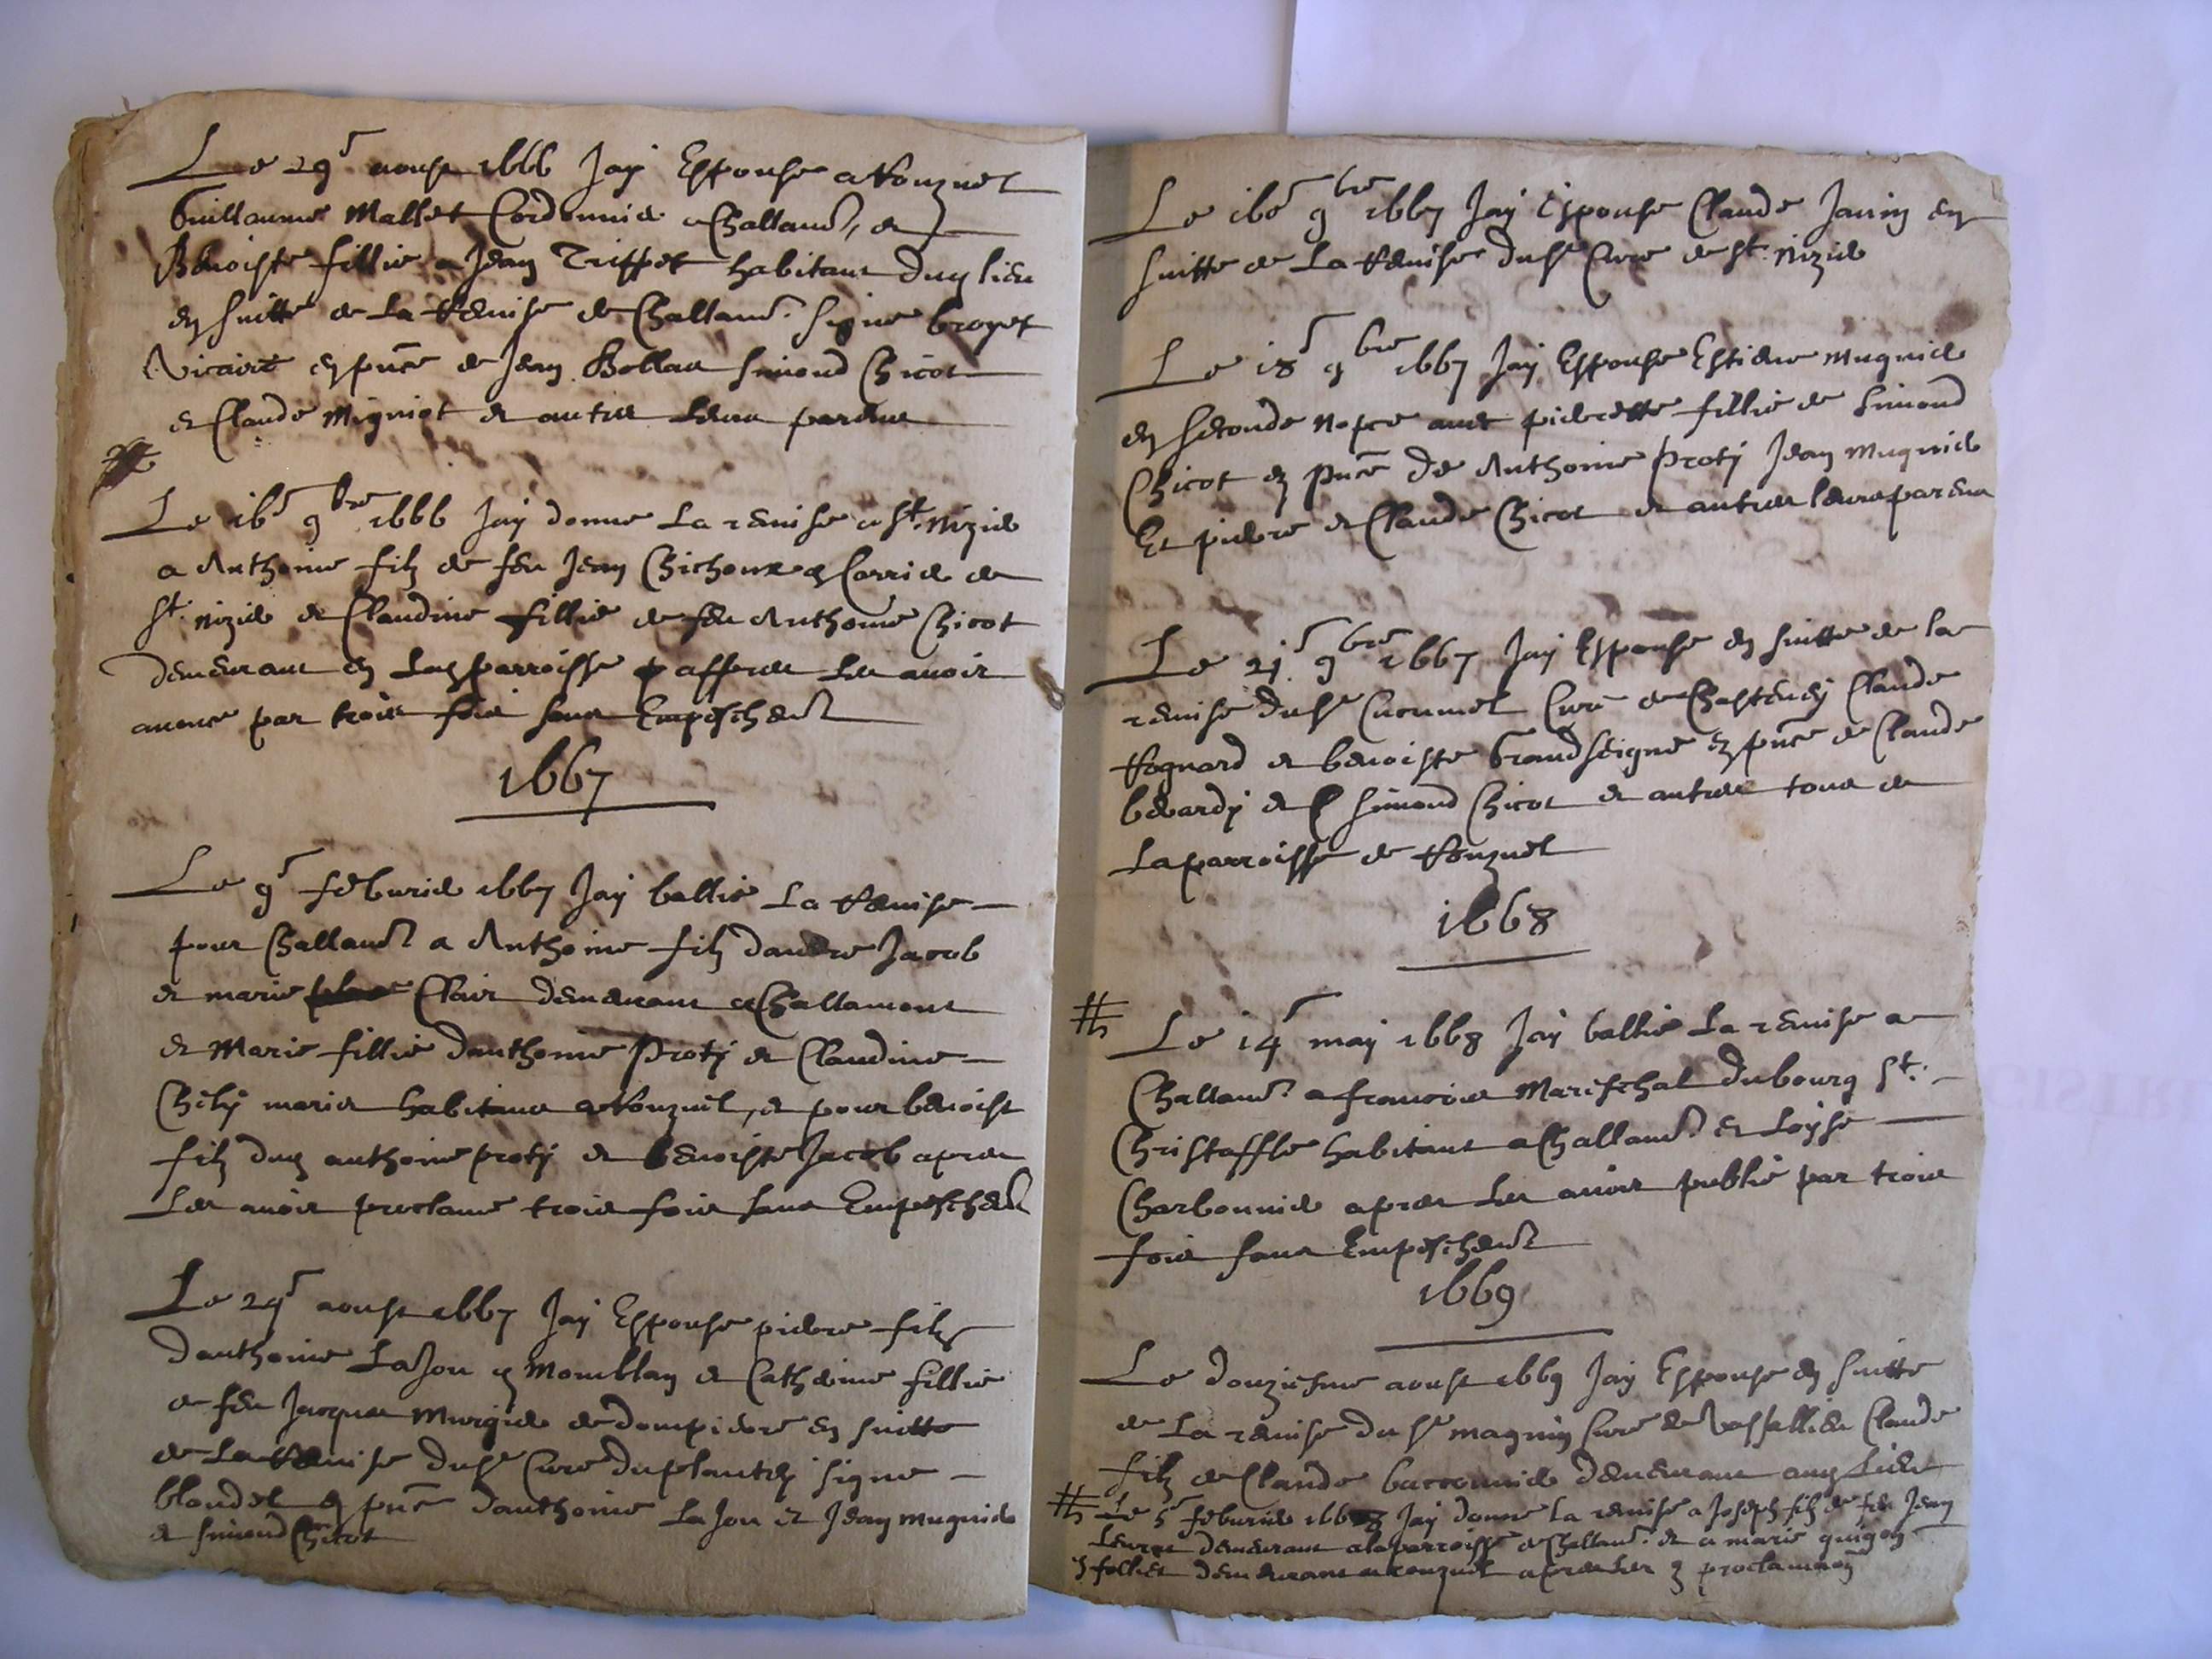 Le 29e aoust 1666 Jay Espouse a Ronzuel
Guillaume Mallet Cordonnier a Challamt, et
Benoiste fillie a Jean Trippet habitant dud lieu
en suitte de la Remise de Challamt. signe broyet
Vicaire en pnce de Jean Bollaa Simond Chicot
et Claude Migniot et autres leurs parens
Le 16e 9bre 1666 Jay donne la remise a St. Nizier
a Anthoine filz de feu Jean Chichoux de
St. nizier et Claudine fillie de feu Anthoine Chicot
demeurant en lad parroisse affres les avoir
anonce par trois fois sans Empeschemt
1667
Le 9e feburier 1667 Jay ballie La Remise
pour Challamt a Anthoine filz dandre Jacob
et marie Clair demeurant a Challamont
et Marie fillie danthoine Proty et Claudine
maries habitans a Ronzuel, et pour benoist
filz dud anthoine proty et benoiste Jacob apres
Les avoir proclame trois fois sans Empeschemt
Le 29e aoust 1667 Jay Espouse pierre filz
danthoine Lajou de Montblan et Catherine fillie
de feu Jacques Murgier de dompierre en suitte
de La Remise du Sr Cure du plantey signe
blondel en pnce danthoine Lajou et Jean mugnier
et simond Chicot
Le 16e 9bre 1667 Jay Espouse Claude Janin en
suitte de La Remise du Sr Cure de St. Nizier
Le 18e 9bre 1667 Jay Espouse Estienne mugnier
en seconde nopce avec pierrette fillie de simond
Chicot en pnce de Anthoine Proty Jean mugnier
Et pierre et Claude Chicot et autres leurs parens
Le 21e 9bre 1667 Jay Espouse en suitte de la
remise du Sr Cucumel Cure de Chastenay Claude
Rognard et benoiste Grandseigne en pnce de Claude
berardy et simond Chicot et autres tous de
La parroisse de Ronzuel
1668
# Le 14e may 1668 Jay ballie La remise a
Challamt. a francois Mareschal du bourg St.
Christoffle habitant a Challamt. et Loyse
Charbonnier apres les avoir publie par trois
fois sans Empeschemt
1669
Le douziesme aoust 1669 Jay Espouse en suitte
de La remise du Sr magnin Cure de Vassallieu Claude
filz de Claude demeurant aud Lieu
# Le 5e feburier 1668 Jay donne la remise a Joseph filz de feu Jean
demeurant a la parroisse de Challamt. et a marie
demeurant a ronzuel apres les proclamaon